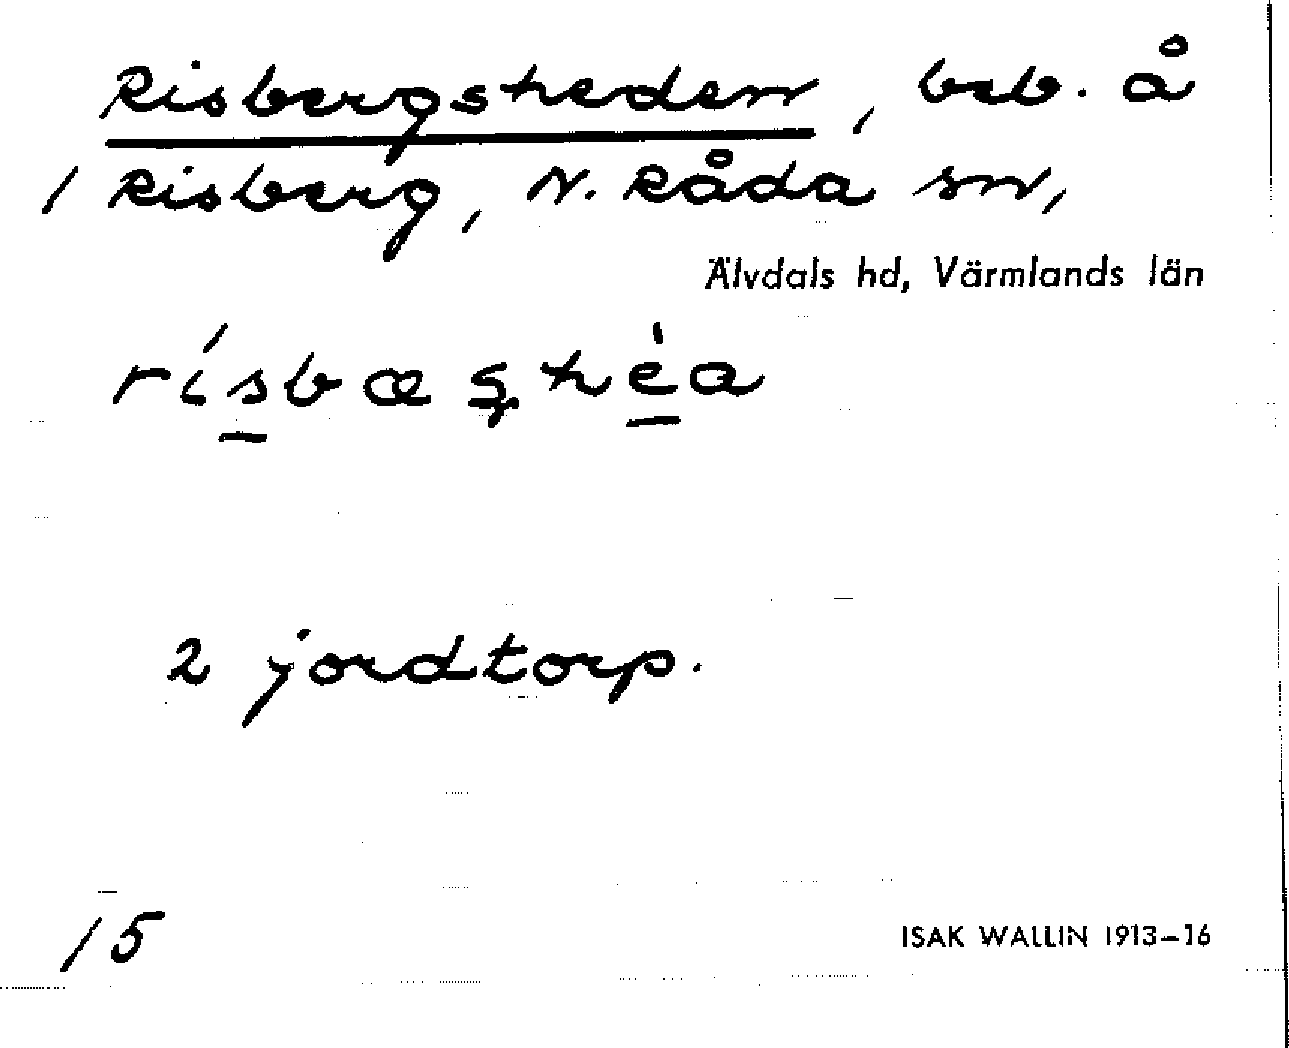 Risbergsheden, beb. å
1 Risberg, N. Råda sn,
Älvdals hd, Värmlands län
2 jordtorp.
15
ISAK WALLIN 1913–16